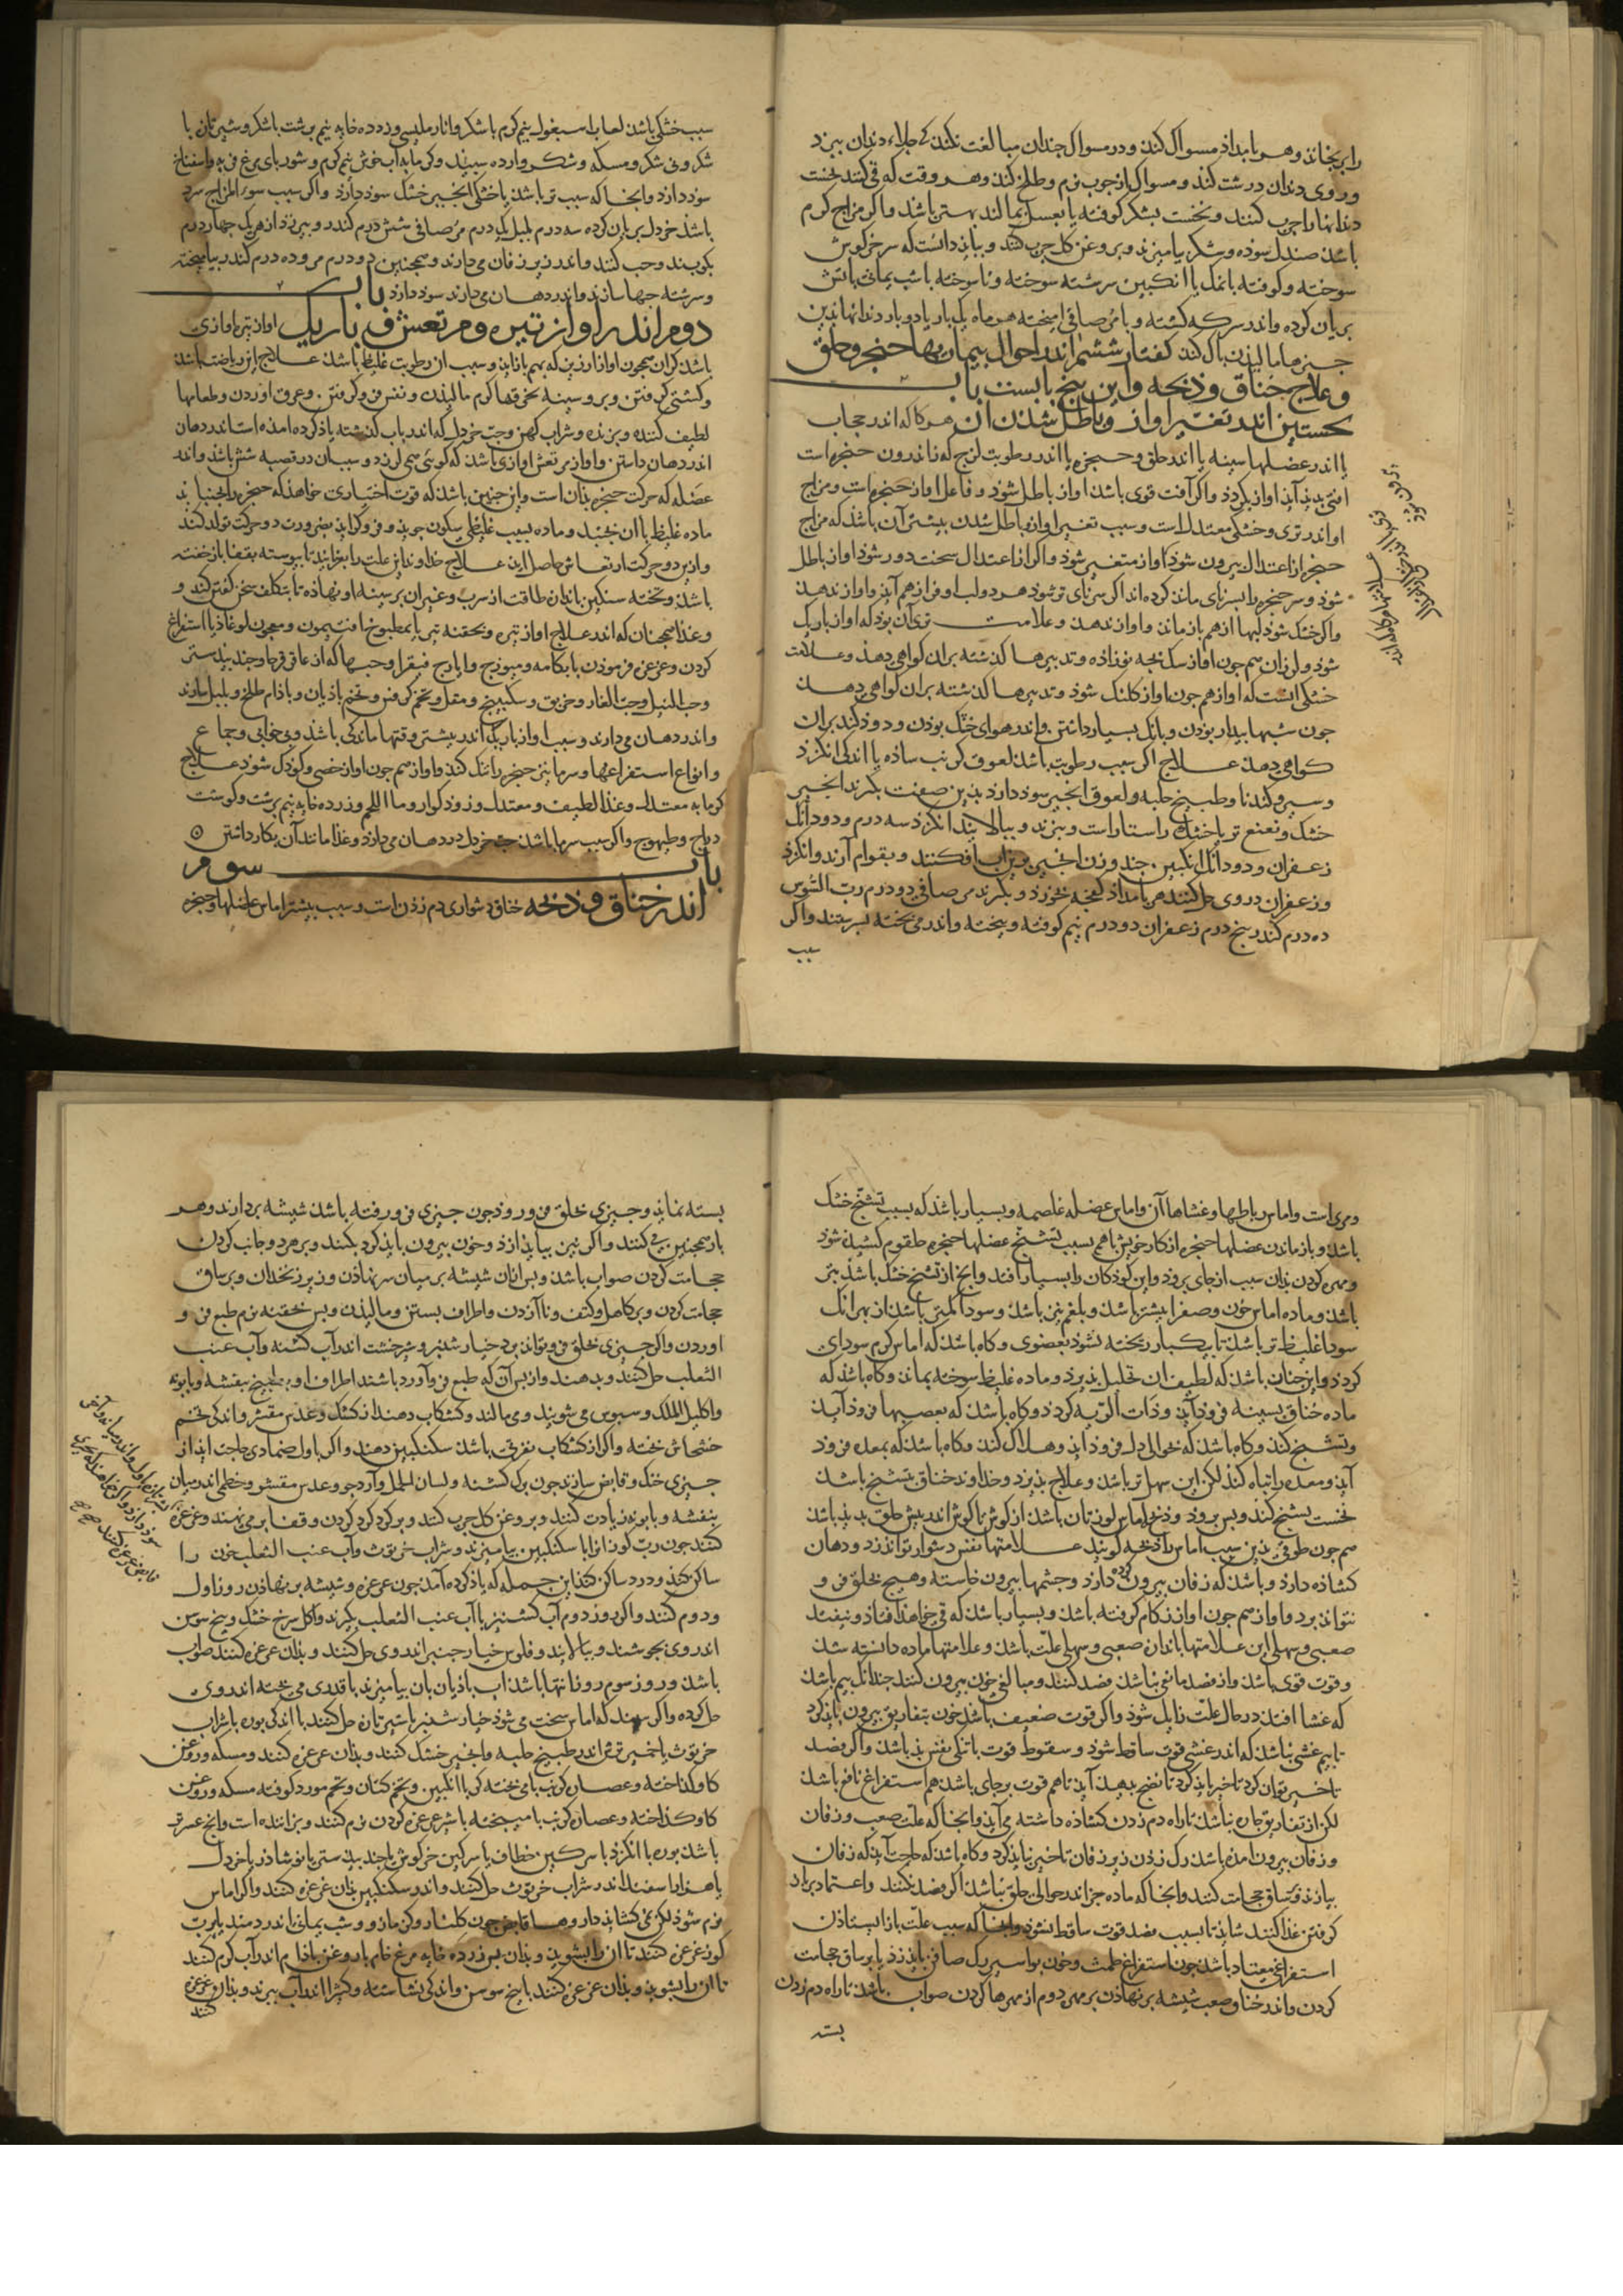 را برنجاند و هر بامداذ مسواک کند و در مسواک چندان مبالغت نکند که جلاء دندان ببرد
و روی دندان درشت کند و مسواک از چوب نرم و طلخ کند و هر وقت که قی کنند نخست
دندانها را چرب کنند و نخست بشکر کوفته یا بعسل بمالند بهتر باشد و اکر مزاج کرم
باشد صندل سوده و شکر بیامیزند و بروغن کل چرب کنند و بباید دانست که سرخر کوش
سوخته و کوفته با نمک یا انکبین سرشته سوخته و ناسوخته باشب یمانی باتش
بریان کرده و اندر سرکه کشته و با مر صافی امیخته هر ماه یک بار یا دو بار دندانها بدین
چیزها مالیدن پاک کند کفتار ششم اندر احوال بیماریها حنجره و حلق
و علاج خناق و ذبحه و این پنج بابست باب
نخستین اندر تغییر اواز و باطل شدن ان هر کاه که اندر حجاب
یا اندر عضلها سینه یا اندر حلق و حنجره یا اندر رطوبت لزج که ناندرون حنجره است
افتی پدید آید اواز بکردد و اکر آفت قوی باشد اواز باطل شود و فاعل اواز حنجره است و مزاج
او اندر تری و خشکی معتدل است و سبب تغییر اواز و باطل شدن بیشتر آن باشد که مزاج
حنجره از اعتدال بیرون شود کاواز متغیر شود و اکر از اعتدال سخت دور شود اواز باطل
شود و سر حنجره را بسر نای مانند کرده اند اکر سر نای تر شود هر دو لب او فراز هم آید و اواز ندهد
و اکر خشک شود لبها از هم باز ماند و اواز ندهد و علامت تری آن بود که اواز باریک
شود و لرزان همچون اواز سک بچه نوزاده و تدبیرها کذشته بران کواهی دهد و علامت
خشکی انست که اواز همچون اواز کلنک شود و تدبیرها کذشته بران کواهی دهد
چون شبها بیدار بودن و بانک بسیار داشتن و اندر هوای خنک بودن و دود کند بران
کواهی دهد علاج اکر سبب رطوبت باشد لعوق کرنب ساده یا اندکی انکزد
و سیر و کندنا و طبیخ حلبه و لعوق انجیر سود دارد بدین صفت بکیرند انجیر
خشک و نعنع تر یا خشک راستاراست و بپزند و بپالایند انکزد سه درم و دو دانک
زعفران و دو دانک انکبین چند وزن انجیر بر آن افکنند و بقوام آرند و انکزد
و زعفران در وی حل کنند هر بامداد کفچه بخورد و بکیرند مر صافی دو درم رب السوس
ده درم کندر پنج درم زعفران دو درم نیم کوفته و بیخته و اندر می پخته بسرشند و اکر
سبب
سبب خشکی باشد لعاب اسبغول نیم کرم با شکر و انار ملیسی و زرده خایه نیم برشت با شکر و شیر تازه با
شکر و نی شکر و مسکه و شکر وارده سپید و کرمابه آب خوش نیم کرم و شوربای مرغ فربه و اسفناخ
سود دارد و انجا که سبب تر باشد یا خشکی انجیر خشک سود دارد و اکر سبب سوء المزاج سرد
باشد خردل بریان کرده سه درم پلپل یک درم مر صافی شش درم کندر و بیرزد از هر یک چهار درم
بکوبند و حب کنند و اندر زیر زفان می دارند و همچنین دو درم مر و ده درم کندر بیامیخته
و سرشته حبها سازند و اندر دهان می دارند سود دارد باب
دوم اندر اواز تیره و مرتعش و باریک اواز تیره اوازی
باشد کران همچون اواز ارزیز که بهم باز اید و سبب ان رطوبت غلیظ باشد علاج از ریاضت باشد
و کشتی کرفتن و بر و سینه بخرقها کرم مالیدن و نفس فرو کرفتن و عرق اوردن و طعامها
لطیف کننده و بزنده و شراب کهن و حب خردل که اندر باب کذشته یاد کرده امده است اندر دهان
اندر دهان داشتن و اواز مرتعش اوازی باشد که کوئی همی لرزد و سبب ان در قصبه شش باشد و اندر
عضله که حرکت حنجره بذان است و این چنین باشد که قوت اختیاری خواهد که حنجره را بجنباند
ماده غلیظ با ان جنبد و ماده بسبب غلیظی سکون جوید و فرو کراید بضرورت دو حرکت تولد کند
و ازین دو حرکت ارتعاش حاصل اید علاج خداوند این علت را بفرماید تا پیوسته بقفا باز خفته
باشد و تخته سنکین باندازه طاقت از سرب و غیر ان بر سینه او نهاده تا بتکلف سخن کفتن کند و
و غذا همچنان که اندر علاج اواز تیره و بحقنه تیز یا بمطبوخ افتیمون و معجون لوغاذیا استفراغ
کردن و غرغره فرمودن بابکامه و میویزج و ایارج فیقرا و حبها که از عاقرقرحا و جند بیدستر
و حب النیل و حب الغار و خربق و سکبینج و مقل و تخم کرفس و تخم بادیان و باذام طلخ و پلپل سازند
و اندر دهان می دارند و سبب اواز باریک اندر بیشتر وقتها ماندکی باشد و بی خوابی و جماع
و انواع استفراغها و سرما نیز حنجره را تنک کند و اواز همچون اواز خصی و کودک شود علاج
کرمابه معتدل و غذا لطیف و معتدل و زود کوار و ما اللحم و زرده خایه نیم برشت و کوشت
دراج و طیهوج و اکر سبب سرما باشد حب خردل در دهان می دارد و غذا مانند آن بکار داشتن
باب سوم
اندر خناق و ذبحه خناق دشواری دم زدن است و سبب بیشتر اماس عضلها و حنجره
و مری است و اماس رباطها و غشاها آن و اماس عضله غلصمه و بسیار باشد که بسبب تشنج خشک
باشد و باز ماندن عضلها حنجره از کار خویش باهم بسبب تشنج عضلها حنجره حلقوم کشیده شود
و مهره کردن بذان سبب از جای برود و این کودکان را بسیار افتد و انج از تشنج خشک باشد بتر
باشد و ماده اماس خون و صفرا بیشتر باشد و بلغم نیز باشد و سودا کمتر باشد از بهر انک
سودا غلیظ تر باشد تا بیکبار ریخته نشود بعضوی و کاه باشد که اماس کرم سودای
کردد و این چنان باشد که لطیف ان تحلیل پذیرد و ماده غلیظ سوخته بماند و کاه باشد که
ماده خناق بسینه فرود آید و ذات الریه کردد و کاه باشد که بعصبها فرود آید
و تشنج کند و کاه باشد که حوالی دل فرود اید و هلاک کند و کاه باشد که بمعده فرود
آید و معده را تباه کند لکن این سهل تر باشد و علاج پذیرد و خداوند خناق بتشنج باشد
نخست تشنج کند و پس برود و ذبحه اماس لوزتان باشد از کوش تا کوش اندر پیش حلق پدید باشد
همچون طوقی بدین سبب اماس را ذبحه کویند علامتها نفس دشوار تواند زد و دهان
کشاده دارد و باشد که زفان بیرون کرده دارد و چشمها بیرون خاسته و هیچ بحلق فرو
نتواند برد و اواز همچون اواز زکام کرفته باشد و بسیار باشد که قی خواهد افتاد و نیفتد
صعبی و سهلی این علامتها باندازه صعبی و سهلی علت باشد و علامتها ماده دانسته شد
و قوت قوی باشد و از فصد مانعی نباشد فصد کنند و مبالغی خون بیرون کنند چندانک بیم باشد
که غشا افتد در حال علت زایل شود و اکر قوت ضعیف باشد خون بتفاریق بیرون باید کرد
تا بیم غشی نباشد که اندر غشی قوت ساقط شود و سقوط قوت با تنکی نفس بد باشد و اکر فصد
تاخیر توان کرد تاخیر باید کرد تا نضج پدید آید تا هم قوت بر جای باشد هم استفراغ نافع باشد
لکن از تفاریق چاره نباشد تا راه دم زدن کشاده داشته می آید و انجا که علت صعب و زفان
و زفان بیرون امده باشد رک زدن زیر زفان تاخیر نباید کرد و کاه باشد که حاجت آید که زفان
بیازند و بساق حجامت کنند و انجا که ماده جز اندر حوالی حلق نباشد اکر فصد نکنند و اعتماد بر باز
کرفتن غذا کنند شاید تا بسبب فصد قوت ساقط نشود و انجا که سبب علت باز ایستادن
استفراغی معتاد باشد چون استفراغ طمث و خون بواسیر رک صافن باید زد یا بر ساق حجامت
کردن و اندر خناق صعب شیشه بر نهادن بر مهره دوم از مهرها کردن صواب باشد تا راه دم زدن
بسته
بسته نماند و چیزی بحلق فرو رود چون چیزی فرو رفته باشد شیشه بردارند و هر
بار همچنین می کنند و اکر نیز بیاید ازد و خون بیرون باید کرد بکنند و بر هر دو جانب کردن
حجامت کردن صواب باشد و پس ازان شیشه بر میان سر نهادن و زیر زنخدان و بر ساق
حجامت کردن و بر کاهل و کتف و نا آزدن و اطراف بستن و مالیدن و پس بحقنه نرم طبع فرو
اوردن و اکر چیزی بحلق فرو تواند برد خیار شنبر و شیرخشت اندر آب کشنه و آب عنب
الثعلب حل کنند و بدهند و از پس آن که طبع فرو آورده باشند اطراف او بطبیخ بنفشه و بابونه
و اکلیل الملک و سبوس می شویند و می مالند و کشکاب دهند از کشک و عدس مقشر و اندکی تخم
خشخاش پخته و اکر از کشکاب نفرتی باشد سکنکبین دهند و اکر باول ضمادی حاجت اید از
چیزی خنک و قابض سازند چون برک کشنه و لسان الحمل و آرد جو و عدس مقشر و خطمی اندر میان
بنفشه و بابونه زیادت کنند و بروغن کل چرب کنند و بر کرد کرد کردن و قفا بر می نهند و غرغره
کنند چون رب کوز انرا با سکنکبین بیامیزند و شراب خرتوث و آب عنب الثعلب خون را
ساکن کند و درد ساکن کند این جمله که یاد کرده آمد چون غرغره و شیشه بر نهادن روز اول
و دوم کنند و اکر روز دوم آب کشنیز با آب عنب الثعلب بکیرند و کل سرخ خشک و بیخ سوسن
اندر وی بجوشند و بپالایند و فلوس خیار چنبر اندر وی حل کنند و بذان غرغره کنند صواب
باشد و روز سوم روز انتها باشد اب باذیان با ان بیامیزند با قدری می پخته اندر وی
حل کرده و اکر بینند که اماس سخت می شود خیار شنبر با شیر تازه حل کنند با اندکی بوره یا شراب
خرتوث یا خمیر ترش اندر طبیخ حلبه و انجیر خشک کنند و بذان غرغره کنند و مسکه و روغن
کاو کداخته و عصاره کرنب با می پخته کر با انکبین و تخم کتان و تخم مورد کوفته مسکه و روغن
کاو کداخته و عصاره کرنب با میبخته با شیر غرغره کردن نرم کنند و پزاننده است و انج عسرتر
باشد بوره با انکزد با سرکین خطاف یا سرکین خرکوش یا جند بیدستر یا نوشادر یا خردل
یا هزار اسفند اندر شراب خرتوث حل کنند و اندر سکنکبین بذان غرغره کنند و اکر اماس
نرم شود لکن نمی کشاید داروها قابض چون کلنار و کزمازو و شب یمانی اندر دمند یا برب
کوز غرغره کنند تا ان را بشوید و بذان بر زرده خایه مرغ خام با روغن باذام اندر آب کرم کنند
تا ان را بشوید و بذان غرغره کنند با بیخ سوسن و اندکی نشاسته و کثیرا اندر آب بپزند و بذان غرغره
کنند